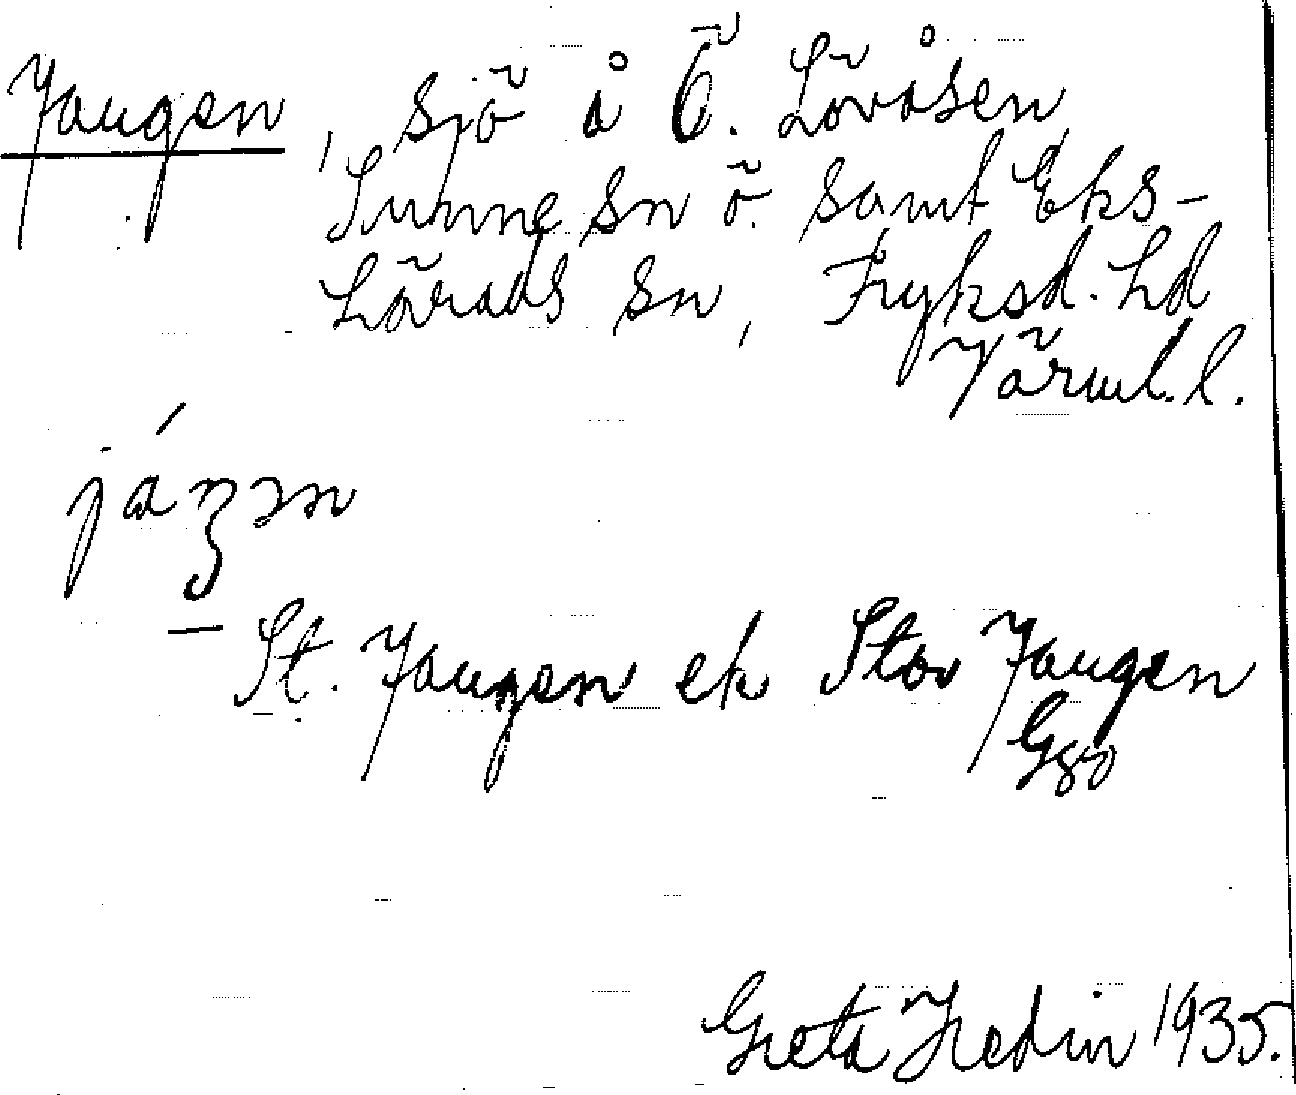 Jangen, sjö å Ö. Lövåsen,
Sunne sn ö. samt Eks-
härads sn, Fryksd. hd
Värml. l.
jáŋən
St. Jangen ek Stor Jangen
Ggö
Greta Hedin 1935.